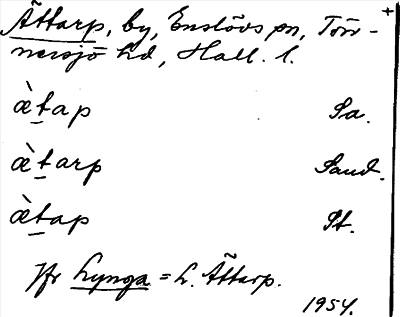 Ättarp, by, Enslövs sn, Tön-
nersjö hd, Hall. l.
æ̀tap Sa.
æ̀tarp Sand.
æ̀tap St.
Jfr Lynga = L. Ättarp.
1954.